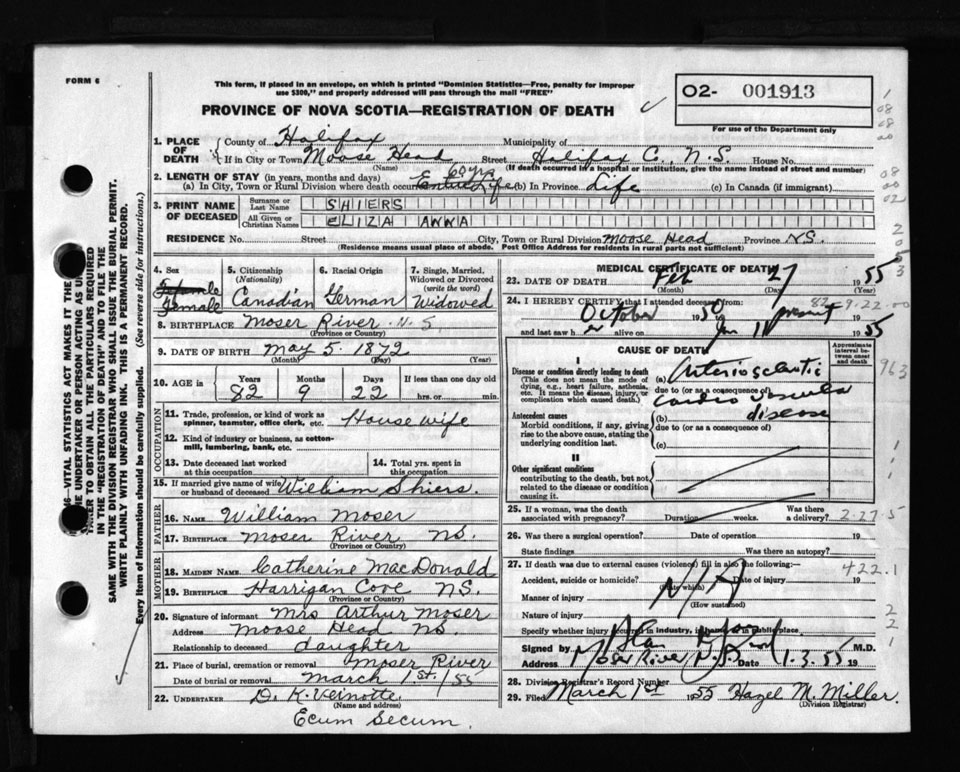 FORM 6
This form, if placed in an envelope, on which is printed "Dominion Statistics—Free, penalty for improper
use $300," and properly addressed will pass through the mail "FREE"
PROVINCE OF NOVA SCOTIA—REGISTRATION OF DEATH
O2- 001913
For use of the Department only
1. PLACE OF DEATH County of Halifax Municipality of
If in City or Town Moose Head Street Halifax C., N.S. House No.
(Name) (If death occurred in a hospital or institution, give the name instead of street and number)
2. LENGTH OF STAY (in years, months and days) 60 yrs
(a) In City, Town or Rural Division where death occurred Entire Life (b) In Province Life (c) In Canada (if immigrant)
3. PRINT NAME OF DECEASED Surname or Last Name SHIERS
All Given or Christian Names ELIZA ANNA
RESIDENCE No. Street City, Town or Rural Division Moose Head Province NS.
(Residence means usual place of abode. Post Office Address for residents in rural parts not sufficient)
4. Sex 5. Citizenship (Nationality) 6. Racial Origin 7. Single, Married, Widowed or Divorced (write the word)
Female Canadian German Widowed
8. BIRTHPLACE Moser River N.S
(Province or Country)
9. DATE OF BIRTH May 5 1872
(Month) (Day) (Year)
10. AGE in Years Months Days If less than one day old
82 9 22 hrs. or min.
OCCUPATION
11. Trade, profession, or kind of work as spinner, teamster, office clerk, etc. House wife
12. Kind of industry or business, as cotton-mill, lumbering, bank, etc.
13. Date deceased last worked at this occupation 14. Total yrs. spent in this occupation
15. If married give name of wife or husband of deceased William Shiers.
FATHER
16. NAME William Moser
17. BIRTHPLACE Moser River NS.
(Province or Country)
MOTHER
18. MAIDEN NAME Catherine MacDonald
19. BIRTHPLACE Harrigan Cove NS.
(Province or Country)
20. Signature of informant Mrs Arthur Moser
Address Moose Head NS.
Relationship to deceased daughter
21. Place of burial, cremation or removal Moser River
Date of burial or removal March 1st/55
22. UNDERTAKER D. K. Veinotte
(Name and address)
Ecum Secum.
MEDICAL CERTIFICATE OF DEATH
23. DATE OF DEATH Feb 27 1955
(Month) (Day)
24. I HEREBY CERTIFY that I attended deceased from:
October 1950 to present 19
and last saw h r alive on Jan 11 1955
CAUSE OF DEATH
Approximate interval between onset and death
I
Disease or condition directly leading to death
(This does not mean the mode of dying, e.g., heart failure, asthenia, etc. It means the disease, injury, or complication which caused death.)
(a) Arteriosclerotic
due to (or as a consequence of)
cardio vascular
Antecedent causes
Morbid conditions, if any, giving rise to the above cause, stating the underlying condition last.
(b) disease
due to (or as a consequence of)
(c)
II
Other significant conditions
contributing to the death, but not related to the disease or condition causing it.
25. If a woman, was the death associated with pregnancy? Duration weeks. Was there a delivery?
26. Was there a surgical operation? Date of operation 19
State findings Was there an autopsy?
27. If death was due to external causes (violence) fill in also the following:—
Accident, suicide or homicide? (State which) Date of injury 19
Manner of injury N/A
(How sustained)
Nature of injury
Specify whether injury occurred in industry, in home or in public place
Signed by M.D.
Address Moser River, N.S. Date 1.3.55 19
28. Division Registrar's Record Number
29. Filed March 1st 1955 Hazel M. Miller
(Division Registrar)
82-9-22-00
963
2-27-5
422.1
THE VITAL STATISTICS ACT MAKES IT THE
THE UNDERTAKER OR PERSON ACTING AS
TAKER TO OBTAIN ALL THE PARTICULARS REQUIRED
IN THE "REGISTRATION OF DEATH" AND TO FILE THE
SAME WITH THE DIVISION REGISTRAR WHO SHALL ISSUE THE BURIAL PERMIT.
WRITE PLAINLY WITH UNFADING INK. THIS IS A PERMANENT RECORD.
Every item of information should be carefully supplied. (See reverse side for instructions.)